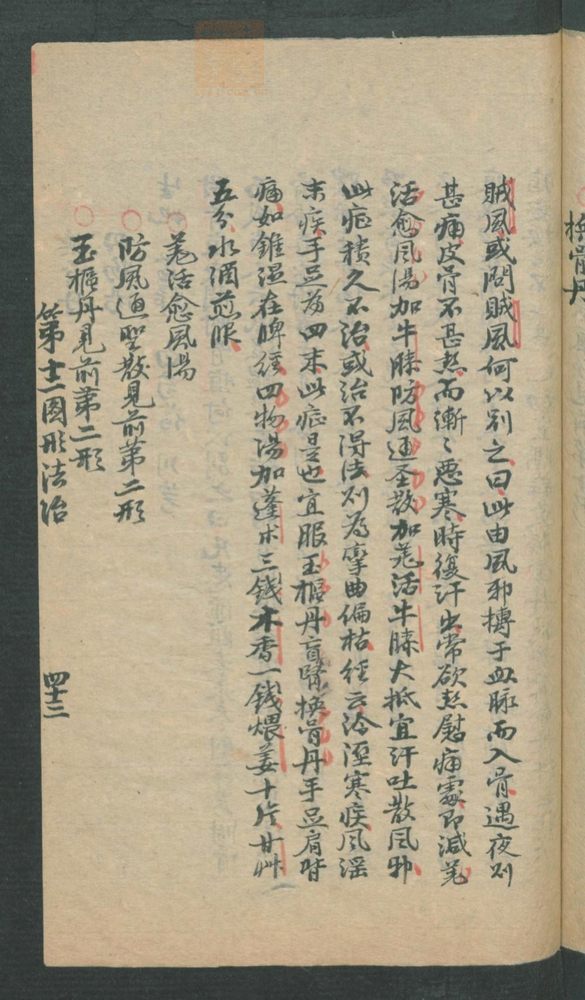 換骨丹
賊風或問賊風何以別之曰此由風邪摶于血脉而入骨遇夜則
甚痛皮骨不甚热而漸〻惡寒時復汗出常欲热慰痛處即減羌
活愈風湯加牛膝防風通圣散加羌活牛膝大抵宜汗吐散風邪
此症積久不治或治不得法則為孪曲偏枯経云冷溼寒疾風淫
末疾手足為四末此症是也宜服玉樞丹換骨丹手足肩背
痛如錐溼在脾経四物湯加蓬朮三錢木香一錢煨姜十片甘艸
五分水酒煎服
羌活愈風湯
防風通聖散見前第二形
玉樞丹見前第二形
第十二圖形法治
四十二